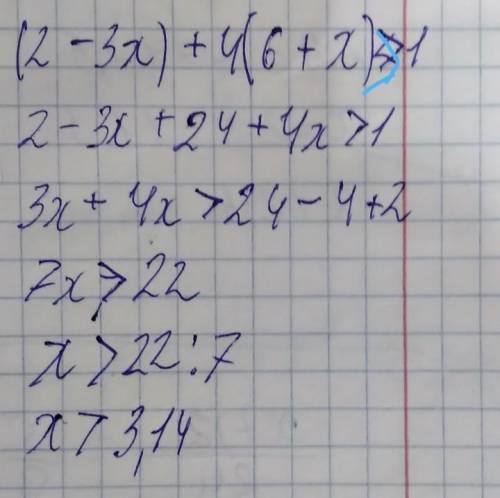 (2 - 3x) + 4(6 + x) > 1
2 - 3x + 24 + 4x > 1
3x + 4x > 24 - 4 + 2
7x > 22
x > 22 : 7
x > 3,14